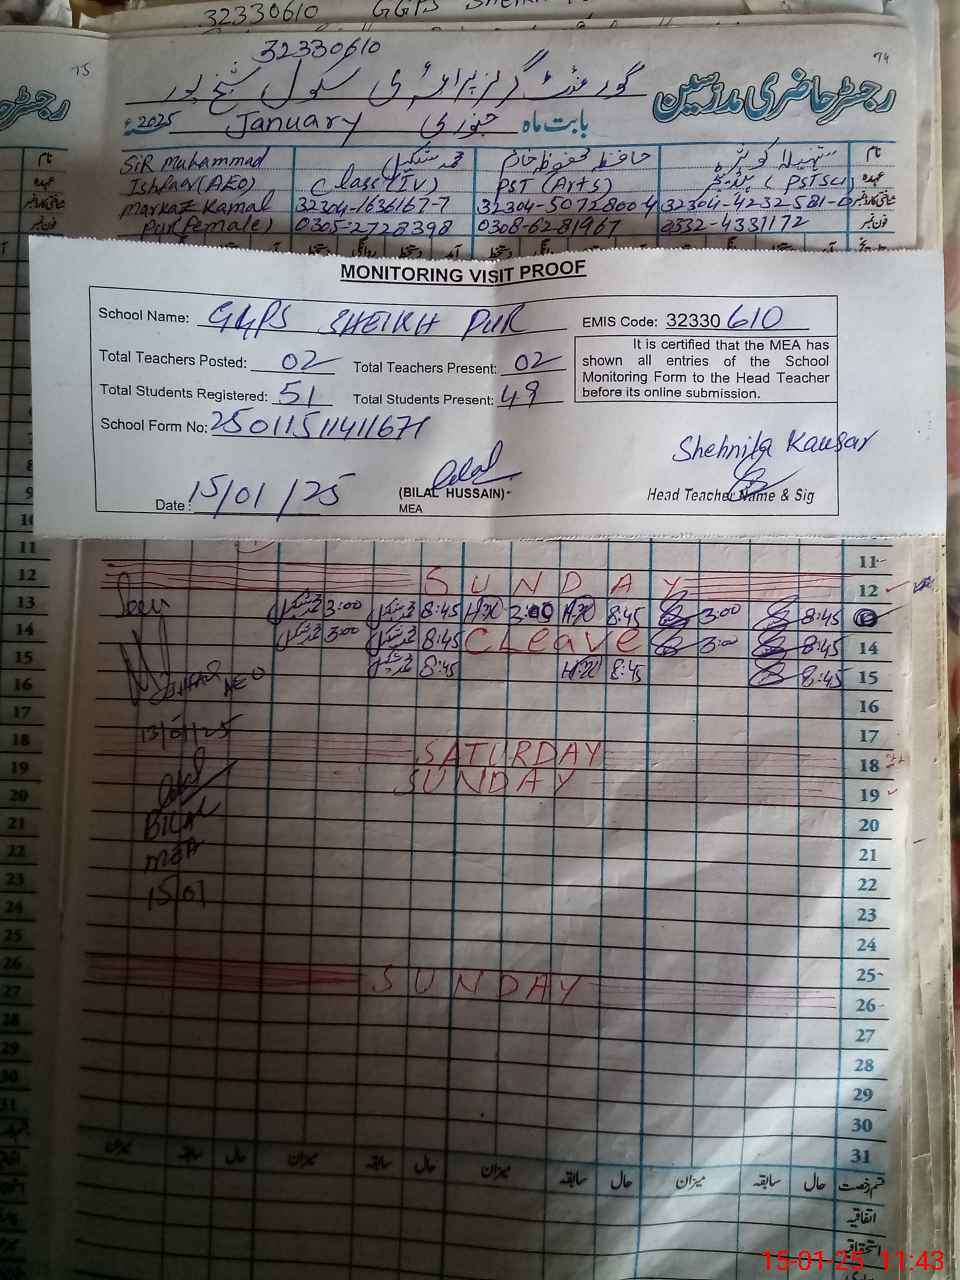 32330610 GGPS SHEIKH
32330610
گورنمنٹ گرلز پرائمری سکول شیخ پور
رجسٹر حاضری مدرسین
74
75
بابت ماہ جنوری January 2025ء
نام
SIR Muhammad
محمد شکیل
حافظہ محفوظ خانم
شہنیلا کوثر
عہدہ
Ishfaq (AEO)
Class (IV)
PST (Arts)
(PSTSc)
Markaz Kamal
32304-1636167-7
32304-5072800-4
32304-4232581-0
Pur (Female)
0305-2728398
0308-6281967
0332-4331172
فون نمبر
MONITORING VISIT PROOF
School Name: GGPS SHEIKH PUR
EMIS Code: 32330 610
Total Teachers Posted: 02 Total Teachers Present: 02
Total Students Registered: 51 Total Students Present: 49
School Form No: 25011511411671
It is certified that the MEA has
shown all entries of the School
Monitoring Form to the Head Teacher
before its online submission.
Shehnila Kausar
Date: 15/01/25
(BILAL HUSSAIN)
MEA
Head Teacher Name & Sig
11
12 SUNDAY 12
13 3:00 8:45 3:00 8:45 3:00 8:45
14 3:00 8:45 C Leave 3:00 8:45 14
15 8:45 8:45 8:45 15
16 AEO 16
17 13/01/25 17
18 SATURDAY 18
19 SUNDAY 19
20 20
21 BILAL 21
22 MEA 22
23 15/01 23
24 24
25 25
26 SUNDAY 26
27 27
28 28
29 29
30 30
31 31
میزان سابقہ حال میزان سابقہ حال میزان سابقہ حال میزان سابقہ حال قسم رخصت
اتفاقیہ
استحقاقی
15-01-25 11:43